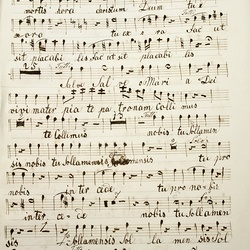 mortis hora christum Dum tu e
moro tu ex o ra Fac ut
sit placabi lis Fac ut sit placabi lis
Sal ve Sal o Mari a Dei
vivi mater pia te pa tronam Colli mus
te Collimus nobis tu Sollamen
sis nobis tu Sollamen sis tu pro
nobis in ter ce de tu pro nobis
in ter ce de nobis tu Sollamen
sis tu Sollamen sis Sol la men sis Sol